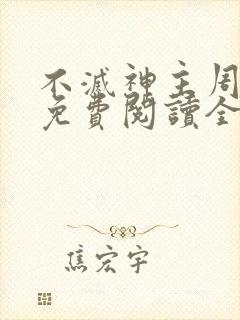 不滅神主周
免費閱讀全
焦宏宇